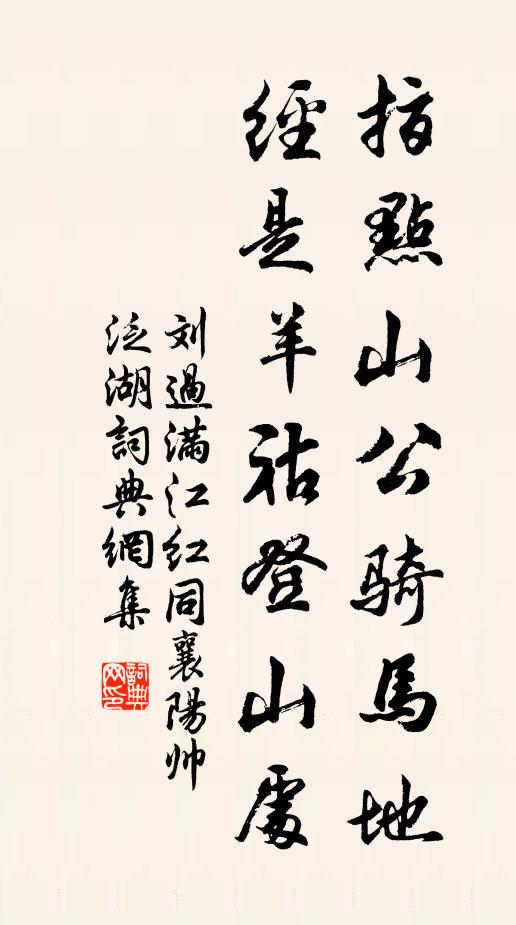 指點山公騎馬地
經是羊祜登山處
刘過滿江红同襄陽帅
泛湖詞典網集
詞典網印